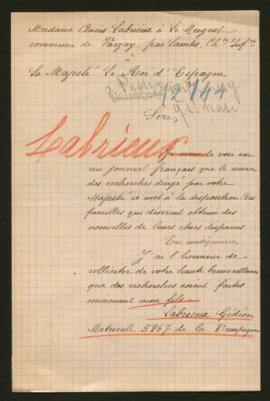 Madame Anaïs Labrieux à Le Muguet
commune de Varzay, par Saintes, Ch. Inf.
à
Sa Majesté le Roi d'Espagne
12744
Sire,
Labrieux
de voir en
un journal français que le service
des recherches dirigé par votre
Majesté se met à la disposition des
familles qui désirent obtenir des
nouvelles de leurs chers disparus
En conséquence
J'ai l'honneur de
solliciter de votre haute bienveillance
que des recherches soient faites
concernant mon fils
Labrieux Gédéon
Matricule 5867 de la 8e compagnie